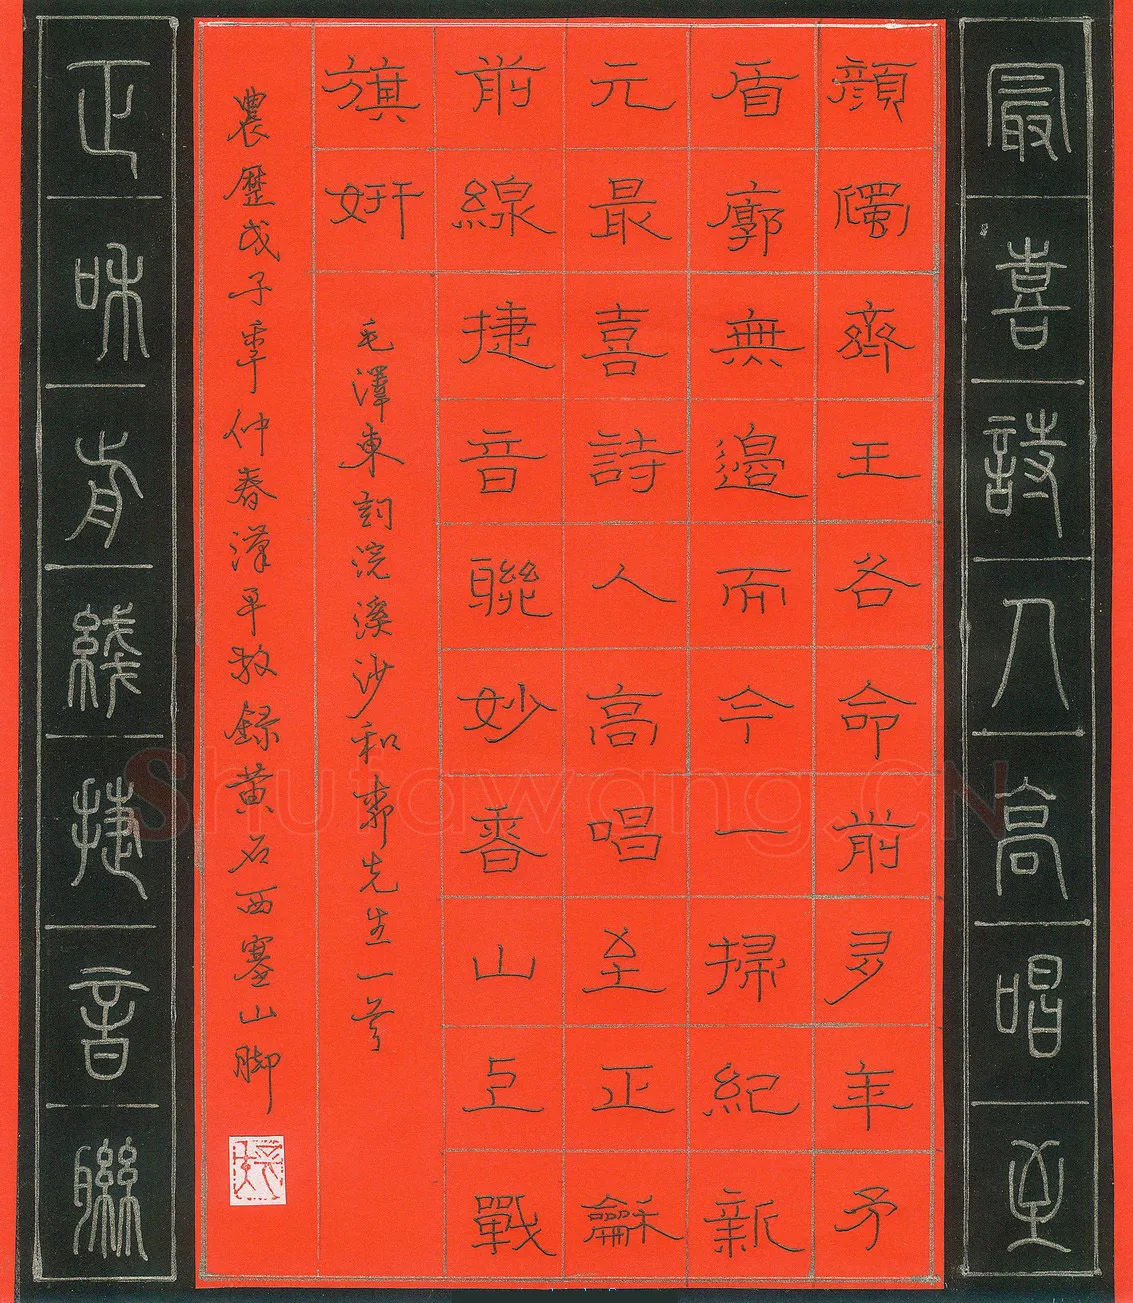 最喜詩人高唱至
顏斶齊王各命前多年矛
盾廓無邊而今一掃紀新
元最喜詩人高唱至正龢
前線捷音聯妙香山上戰
旗妍
毛澤東詞浣溪沙和郭先生一首
農歷戊子年仲春漢平敬録黃石西塞山脚
正和前綫捷音聯
Shufawang.CN